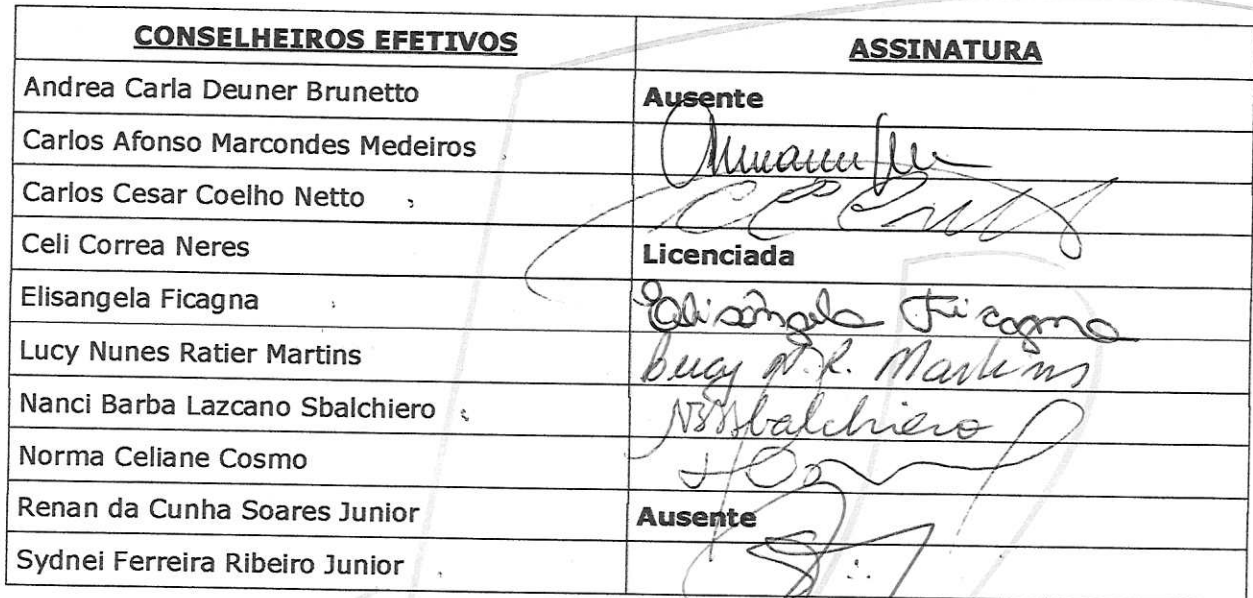 CONSELHEIROS EFETIVOS ASSINATURA
Andrea Carla Deuner Brunetto Ausente
Carlos Afonso Marcondes Medeiros
Carlos Cesar Coelho Netto
Celi Correa Neres Licenciada
Elisangela Ficagna Elisângela Ficagna
Lucy Nunes Ratier Martins Lucy N. R. Martins
Nanci Barba Lazcano Sbalchiero NBLSbalchiero
Norma Celiane Cosmo
Renan da Cunha Soares Junior Ausente
Sydnei Ferreira Ribeiro Junior